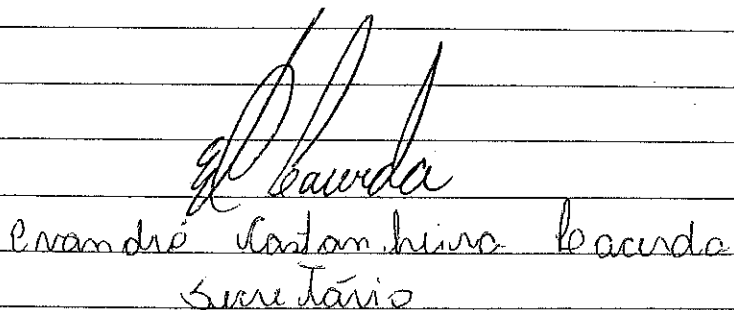 Lacerda
Evandré Kastanheira Lacerda
Secretário